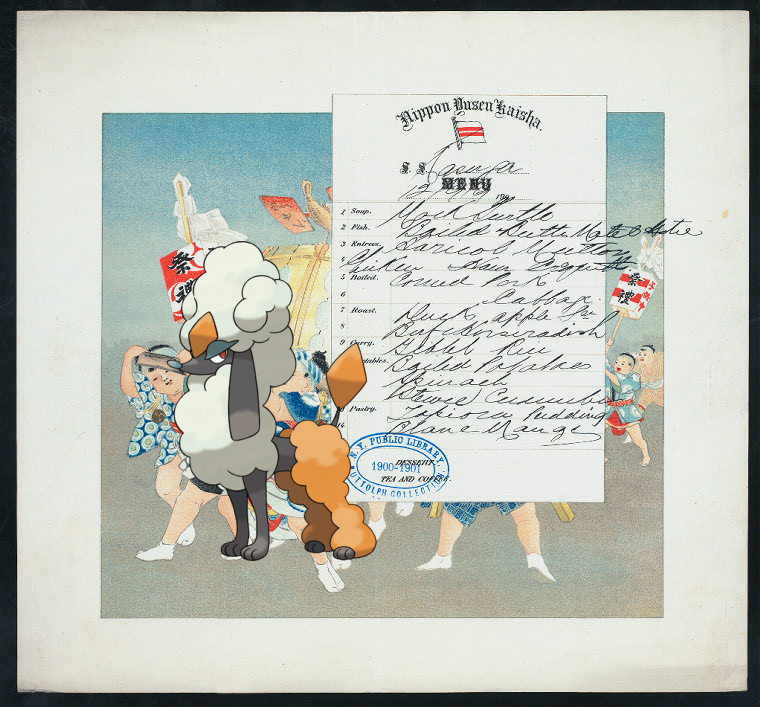 Nippon Yusen Kaisha.
S. S. Kasuga
MENU
190
1 Soup. Mock Turtle
2 Fish. Boiled Butter Mate
3 Entrees. Haricot Mutton
4 Chicken Ham Croquette
5 Boiled. Corned Pork
6 Cabbage
7 Roast. Duck apple
8 Beef Horseradish
9 Curry. Giblet Rice
Vegetables. Boiled Potatoes
Spinach
Stewed Cucumber
Pastry. Tapioca Pudding
14 Blanc Mange
DESSERT.
TEA AND COFFEE.
N.Y. PUBLIC LIBRARY,
1900-1901
BUTTOLPH COLLECTION.
祭禮
祭禮